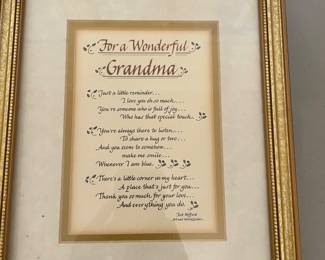 For a Wonderful
Grandma
Just a little reminder...
I love you oh so much....
You're someone who is full of joy...
Who has that special touch.
You're always there to listen....
To share a hug or two...
And you seem to somehow...
make me smile...
Whenever I am blue.
There's a little corner in my heart...
A place that's just for you....
Thank you so much, for your love...
And everything you do.